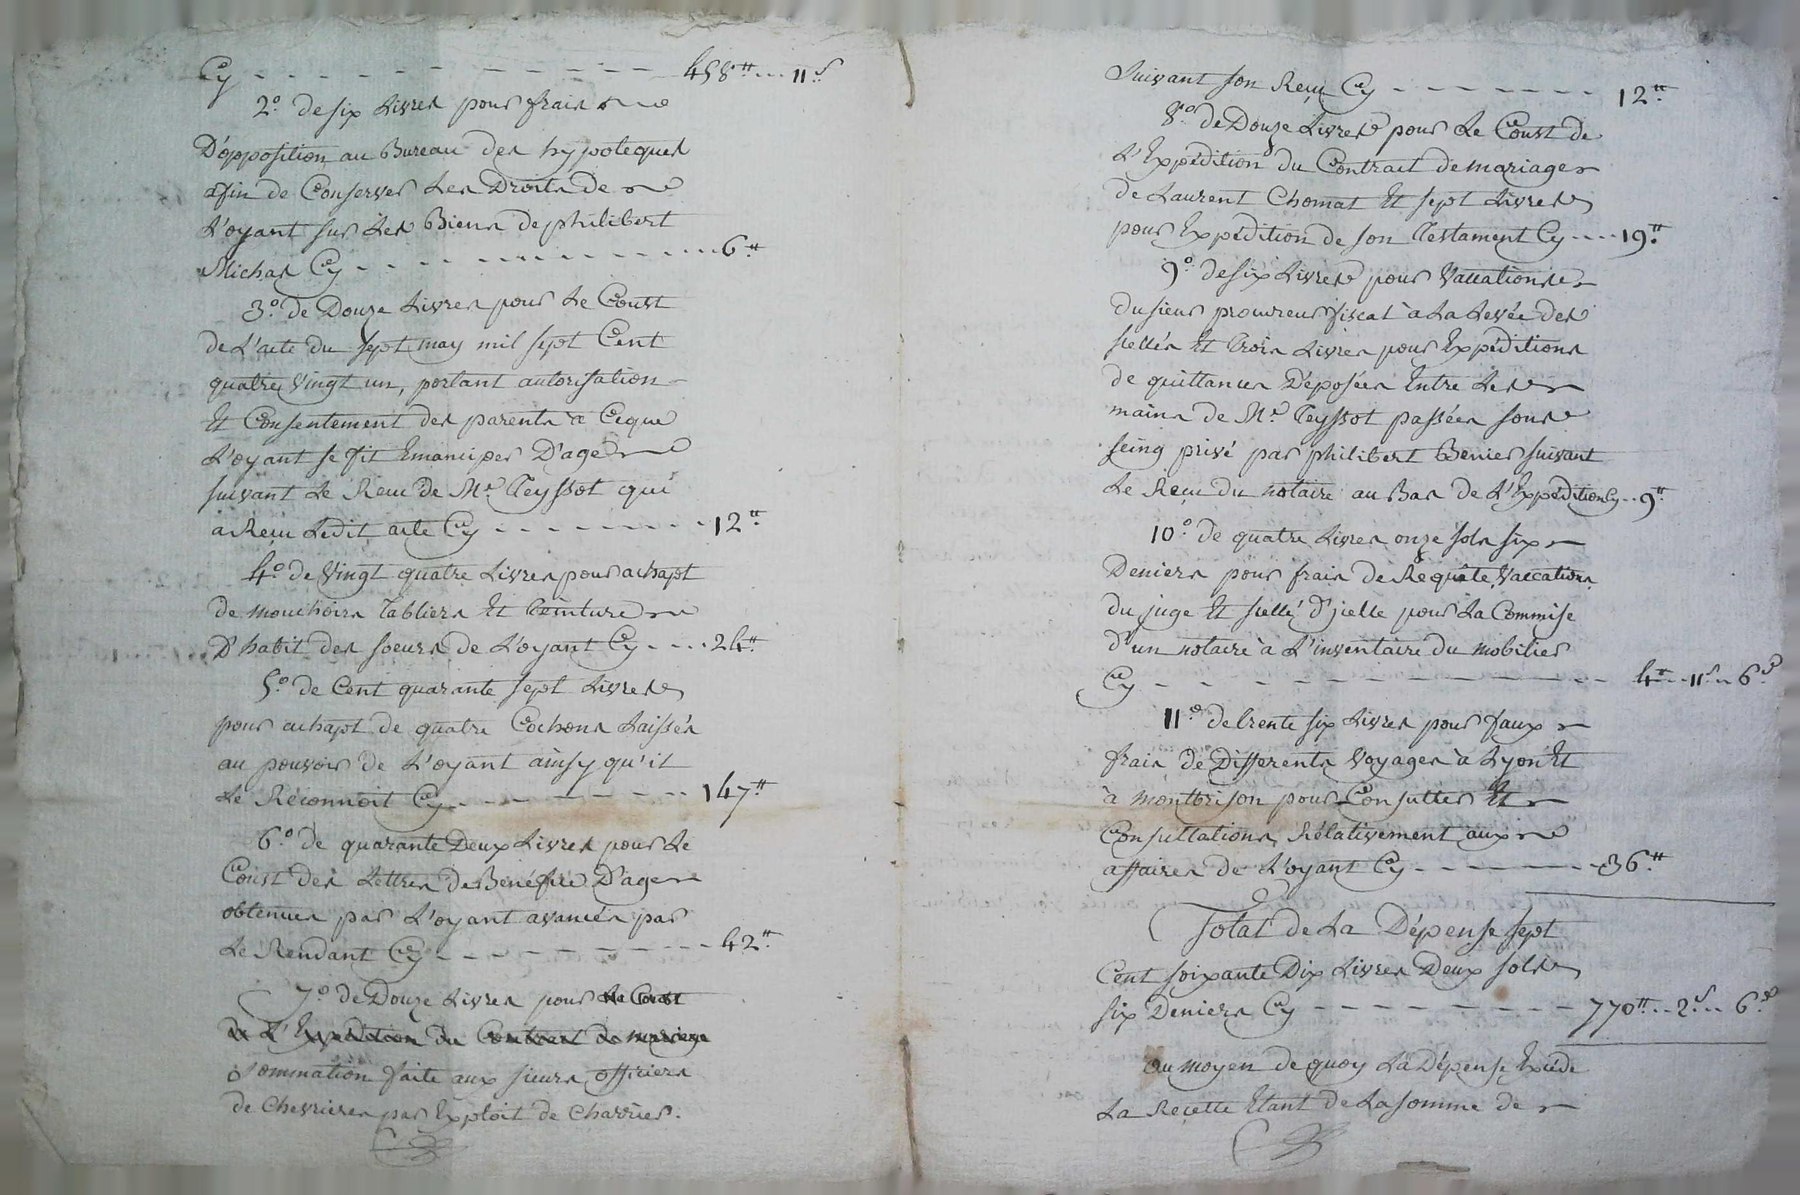 Cy - - - - - - - - - - - 458tt .. 11s
2o. de six Livres pour frais
D'opposition au Bureau des hypoteques
afin de Conserver Les Droits de
L'oyant sur Les Biens de philibert
Michas Cy - - - - - - - - - - - 6tt
3o. de Douze Livres pour Le Coust
de L'acte du sept may mil sept Cent
quatre Vingt un, portant autorisation
Et Consentement des parents à Ceque
L'oyant se fit Emanciper D'age
suivant Le Reçu de Me. Teyssot qui
a Reçu Ledit acte Cy - - - - - - - - 12tt
4o. de Vingt quatre Livres pour achapt
de mouchoirs Tabliers Et Teinture
D'habit des soeurs de L'oyant Cy - - - - 24tt
5o. de Cent quarante sept Livres
pour achapt de quatre Cochons Laissés
au pouvoir de L'oyant ainsy qu'il
Le Réconnoit Cy - - - - - - - - 147tt
6o. de quarante Deux Livres pour Le
Coust des Lettres de Bénéfice D'age
obtenues par L'oyant avancés par
Le Rendant Cy - - - - - - - - - 42tt
7o. de Douze Livres pour Le Coust
de L'Expedition du Contract de mariage
Sommation faite aux sieurs officiers
de Chevrieres par Exploit de Charrier.
suivant son Reçu Cy - - - - - - - 12tt
8o. de Douze Livres pour Le Coust de
L'Expédition du Contrait de mariage
de Laurent Chomat Et sept Livres
pour Expédition de son Testament Cy - - - - 19tt
9o. de six Livres pour Vacations
du sieur procureur fiscal à La Levée des
scellés Et Trois Livres pour Expéditions
de quittances Déposées Entre Les
mains de Me. Teyssot passées sous
seing privé par philibert Benier suivant
Le Reçu du notaire au Bas de L'Expédition Cy .. 9tt
10o. de quatre Livres onze sols six
Deniers pour frais de Requête, Vaccations
du juge Et scellé d'jcelle pour La Commise
d'un notaire à L'inventaire du mobilier
Cy - - - - - - - - - - - 4tt .. 11s .. 6d
11o. de trente six Livres pour faux
frais de Differents Voyages à Lyon Et
à montbrison pour Consulter Et
Consultations Rélativement aux
affaires de L'oyant Cy - - - - - - - 36tt
Total de La Dépense sept
Cent soixante Dix Livres Deux sols
six Deniers Cy - - - - - - - - - 770tt .. 2s .. 6d
au moyen de quoy La Dépense Excéde
La Recette Etant de La somme de